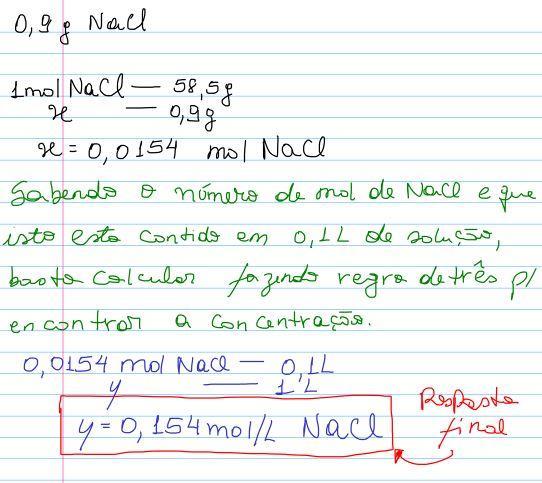 0,9 g NaCl
1mol NaCl — 58,5g
x — 0,9g
x = 0,0154 mol NaCl
Sabendo o número de mol de NaCl e que
isto esta contido em 0,1L de solução,
basta calcular fazendo regra de três p/
encontrar a concentração.
0,0154 mol NaCl — 0,1L
y — 1L
y = 0,154 mol/L NaCl
Resposta
final